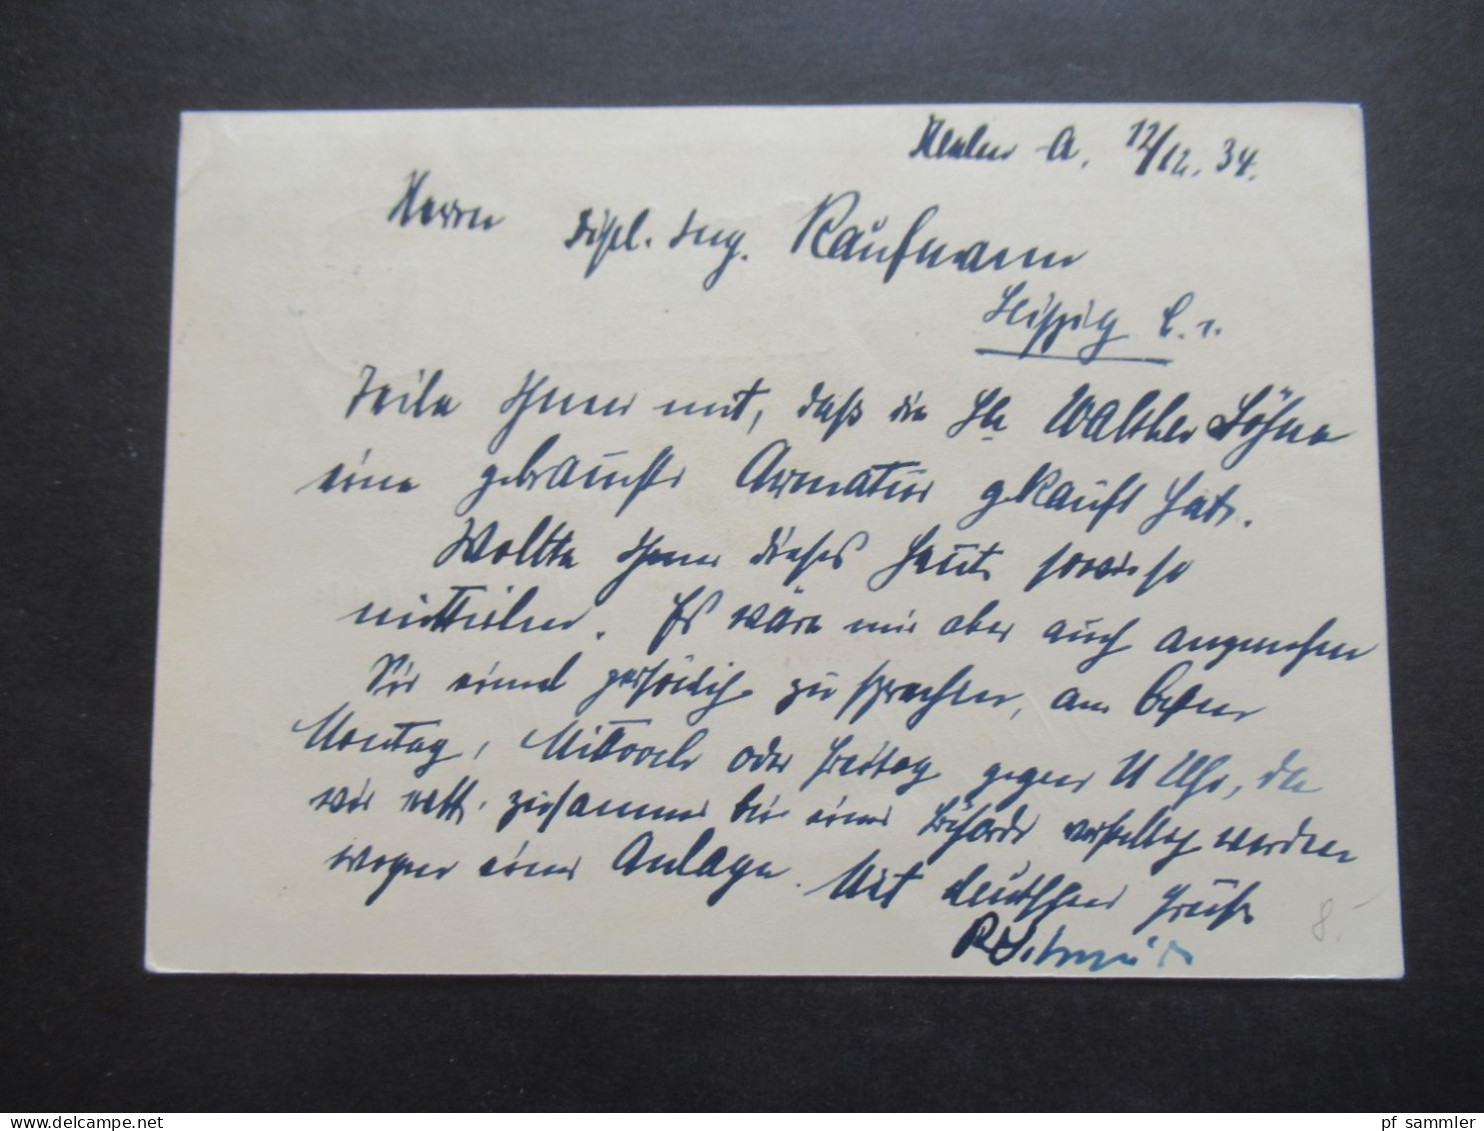 A. 12/12. 34.
Herrn Dipl. Ing. Kaufmann
Leipzig C. 1.
Teile Ihnen mit, daß die Fa Walther Söhne
eine gebrauchte Armatur gekauft hat.
Wollte Ihnen dieses heute sowieso
mitteilen. Es wäre mir aber auch angenehm
Sie einmal persönlich zu sprechen, am besten
Montag, Mittwoch oder Freitag gegen 11 Uhr, da
wir zusammen bei einer Behörde vorstellig werden
wegen einer Anlage. Mit deutschem Gruß
8.-
pf_sammler
www.delcampe.net